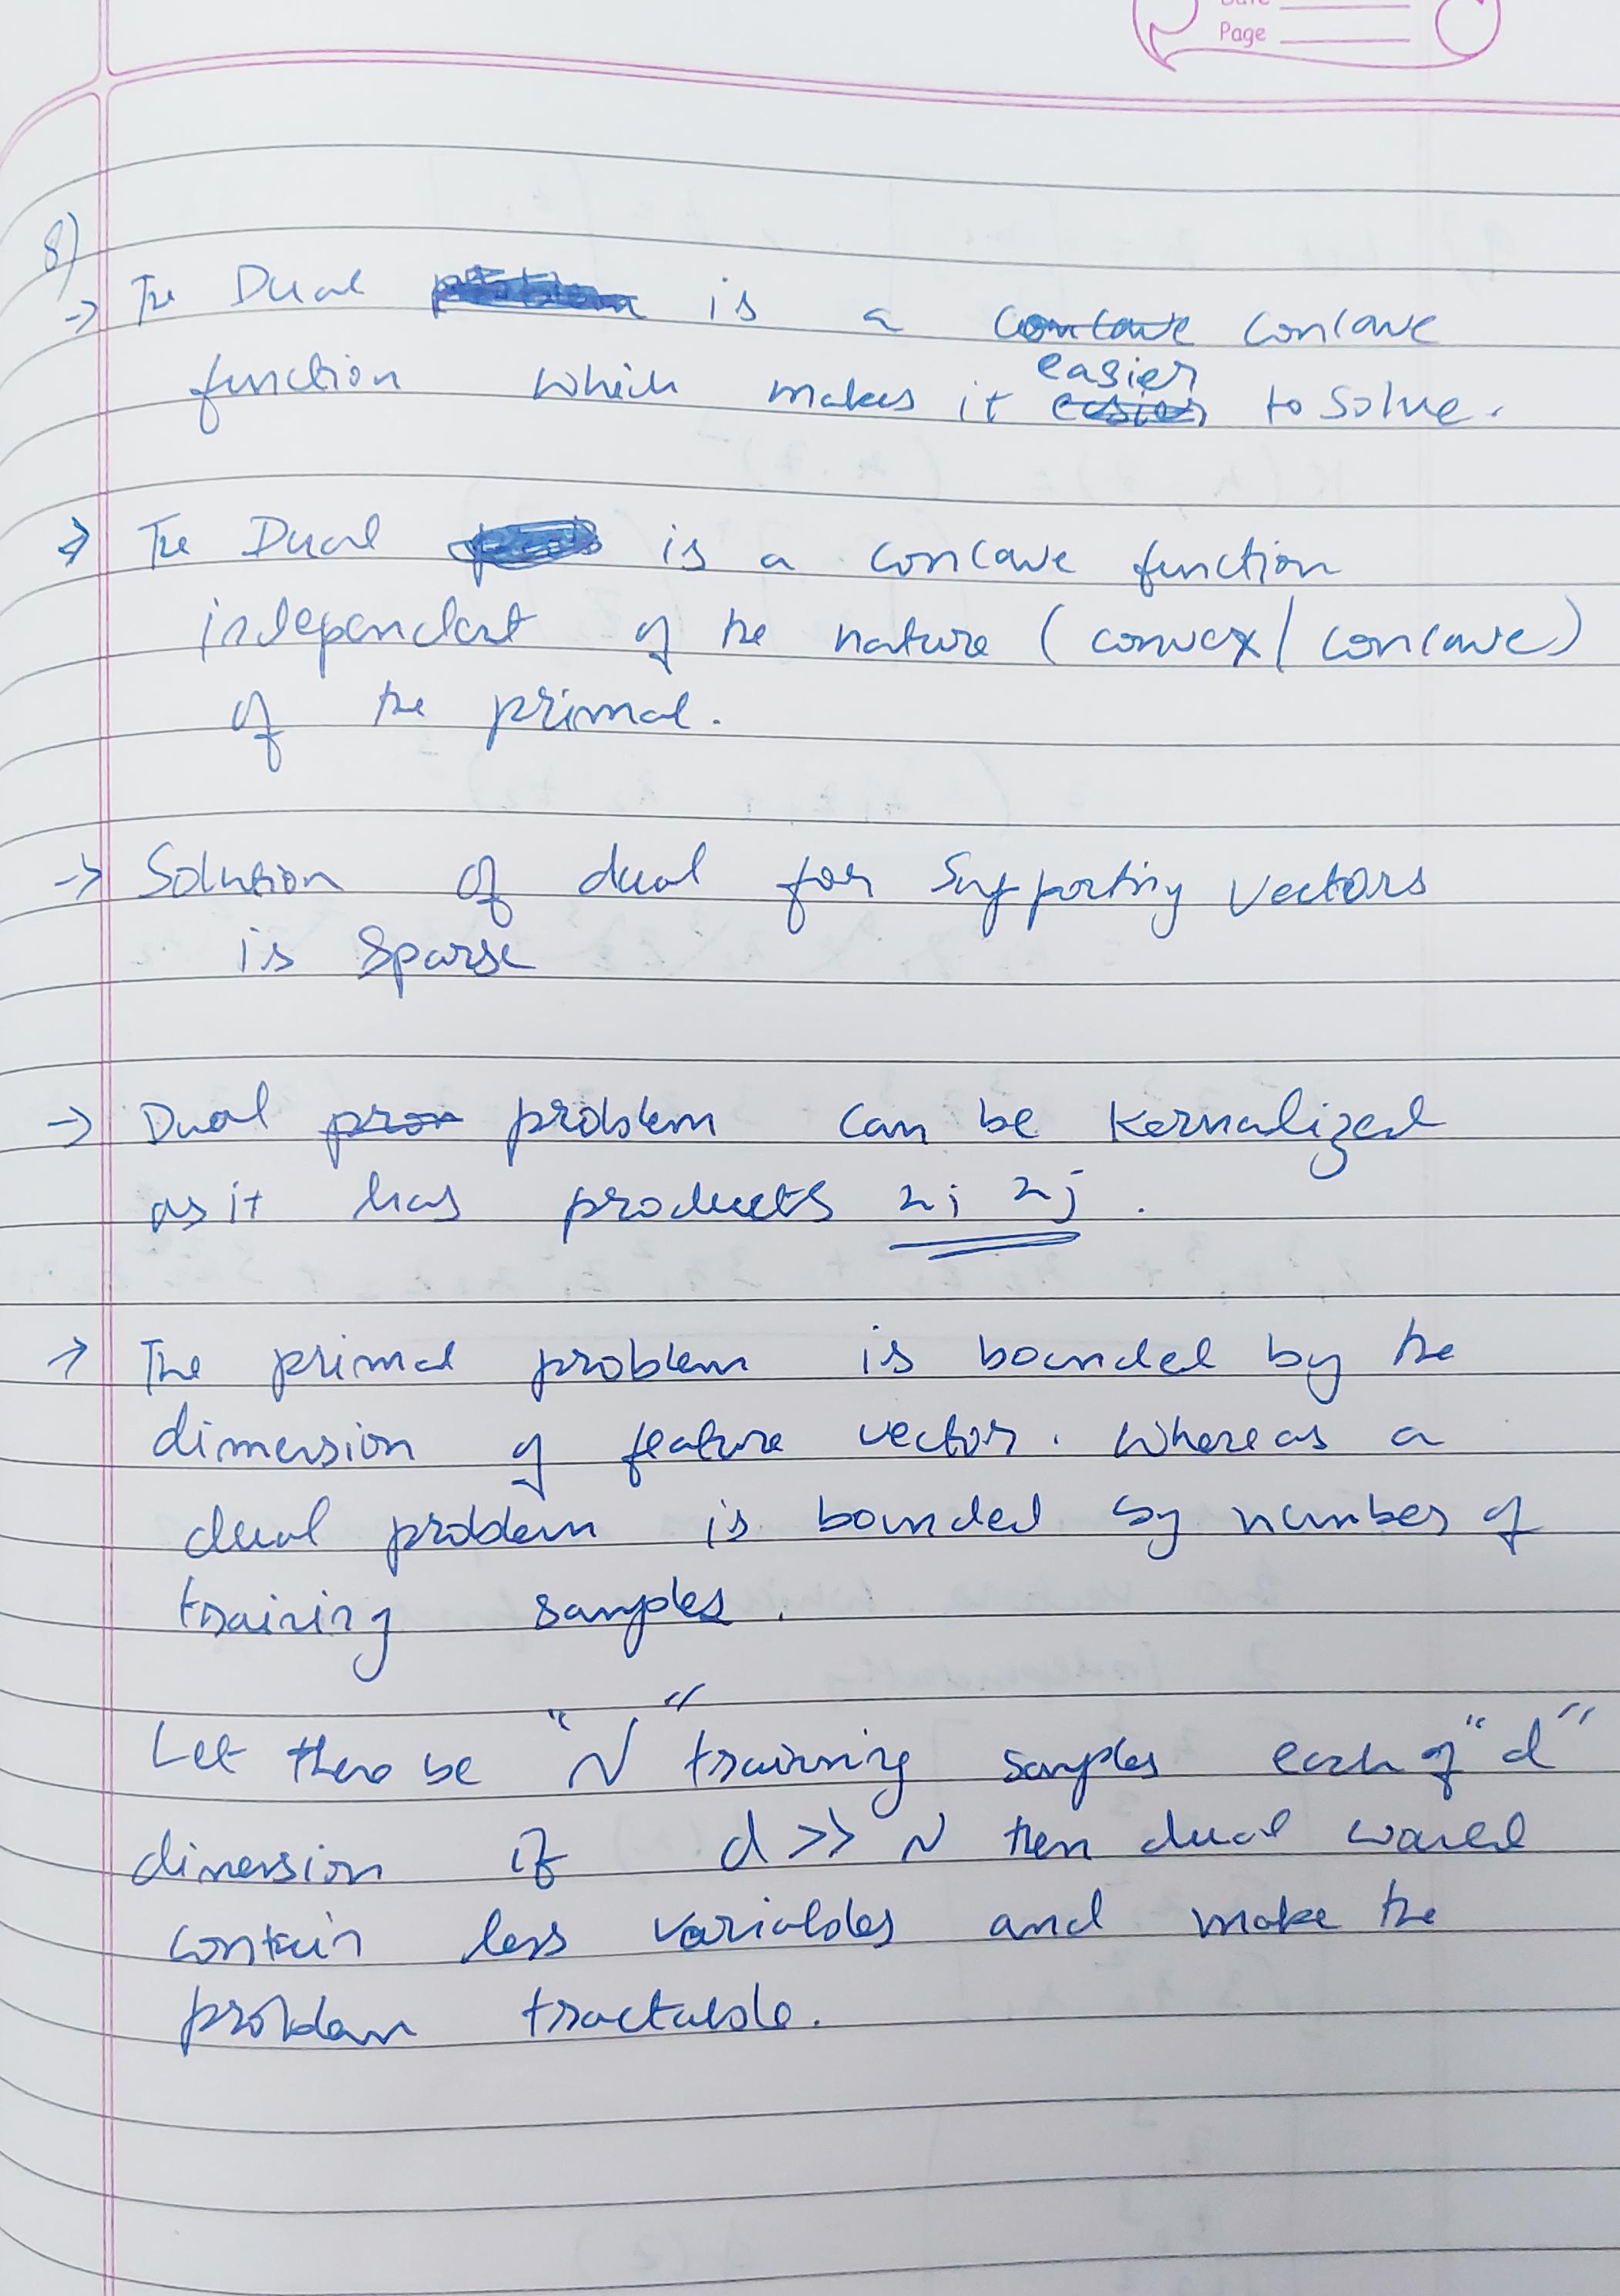 Page
8)
→ The Dual is a concave concave
function which makes it easier easier to solve.
→ The Dual is a concave function
independent of the nature (convex/concave)
of the primal.
→ Solution of dual for Supporting Vectors
is sparse
→ Dual pron problem can be Kernalized
as it has products xi xj .
→ The primal problem is bounded by the
dimension of feature vector. Whereas a
dual problem is bounded by number of
training samples.
Let there be "N" training samples each of "d"
dimension if d >> N then dual would
contain less variables and make the
problem tractable.